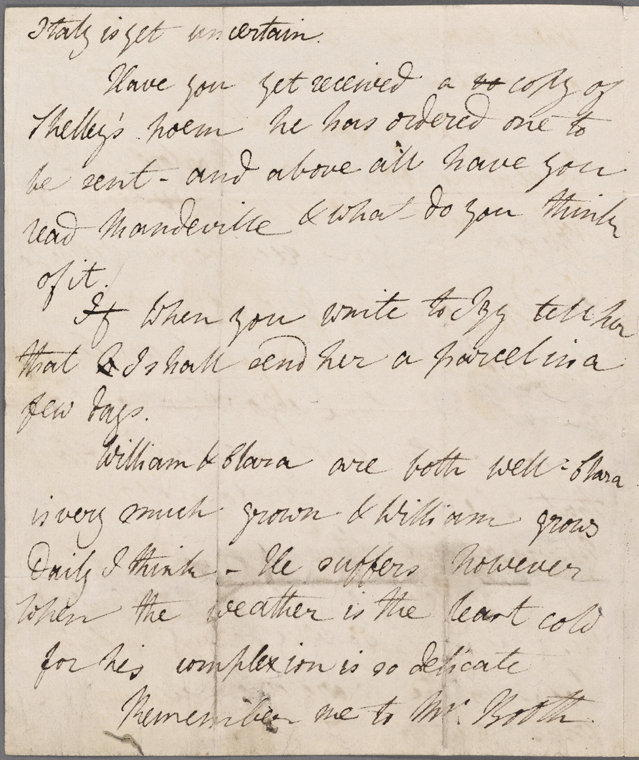 Italy is yet uncertain.
Have you yet received a to copy of
Shelley's poem he has ordered one to
be sent - and above all have you
read Mandeville & what do you think
of it.
If When you write to Izy tell her
that I shall send her a parcel in a
few days.
William & Clara are both well - Clara
is very much grown & William grows
Daily I think - He suffers however
when the weather is the least cold
for his complexion is so delicate
Remember me to Mr. Booth